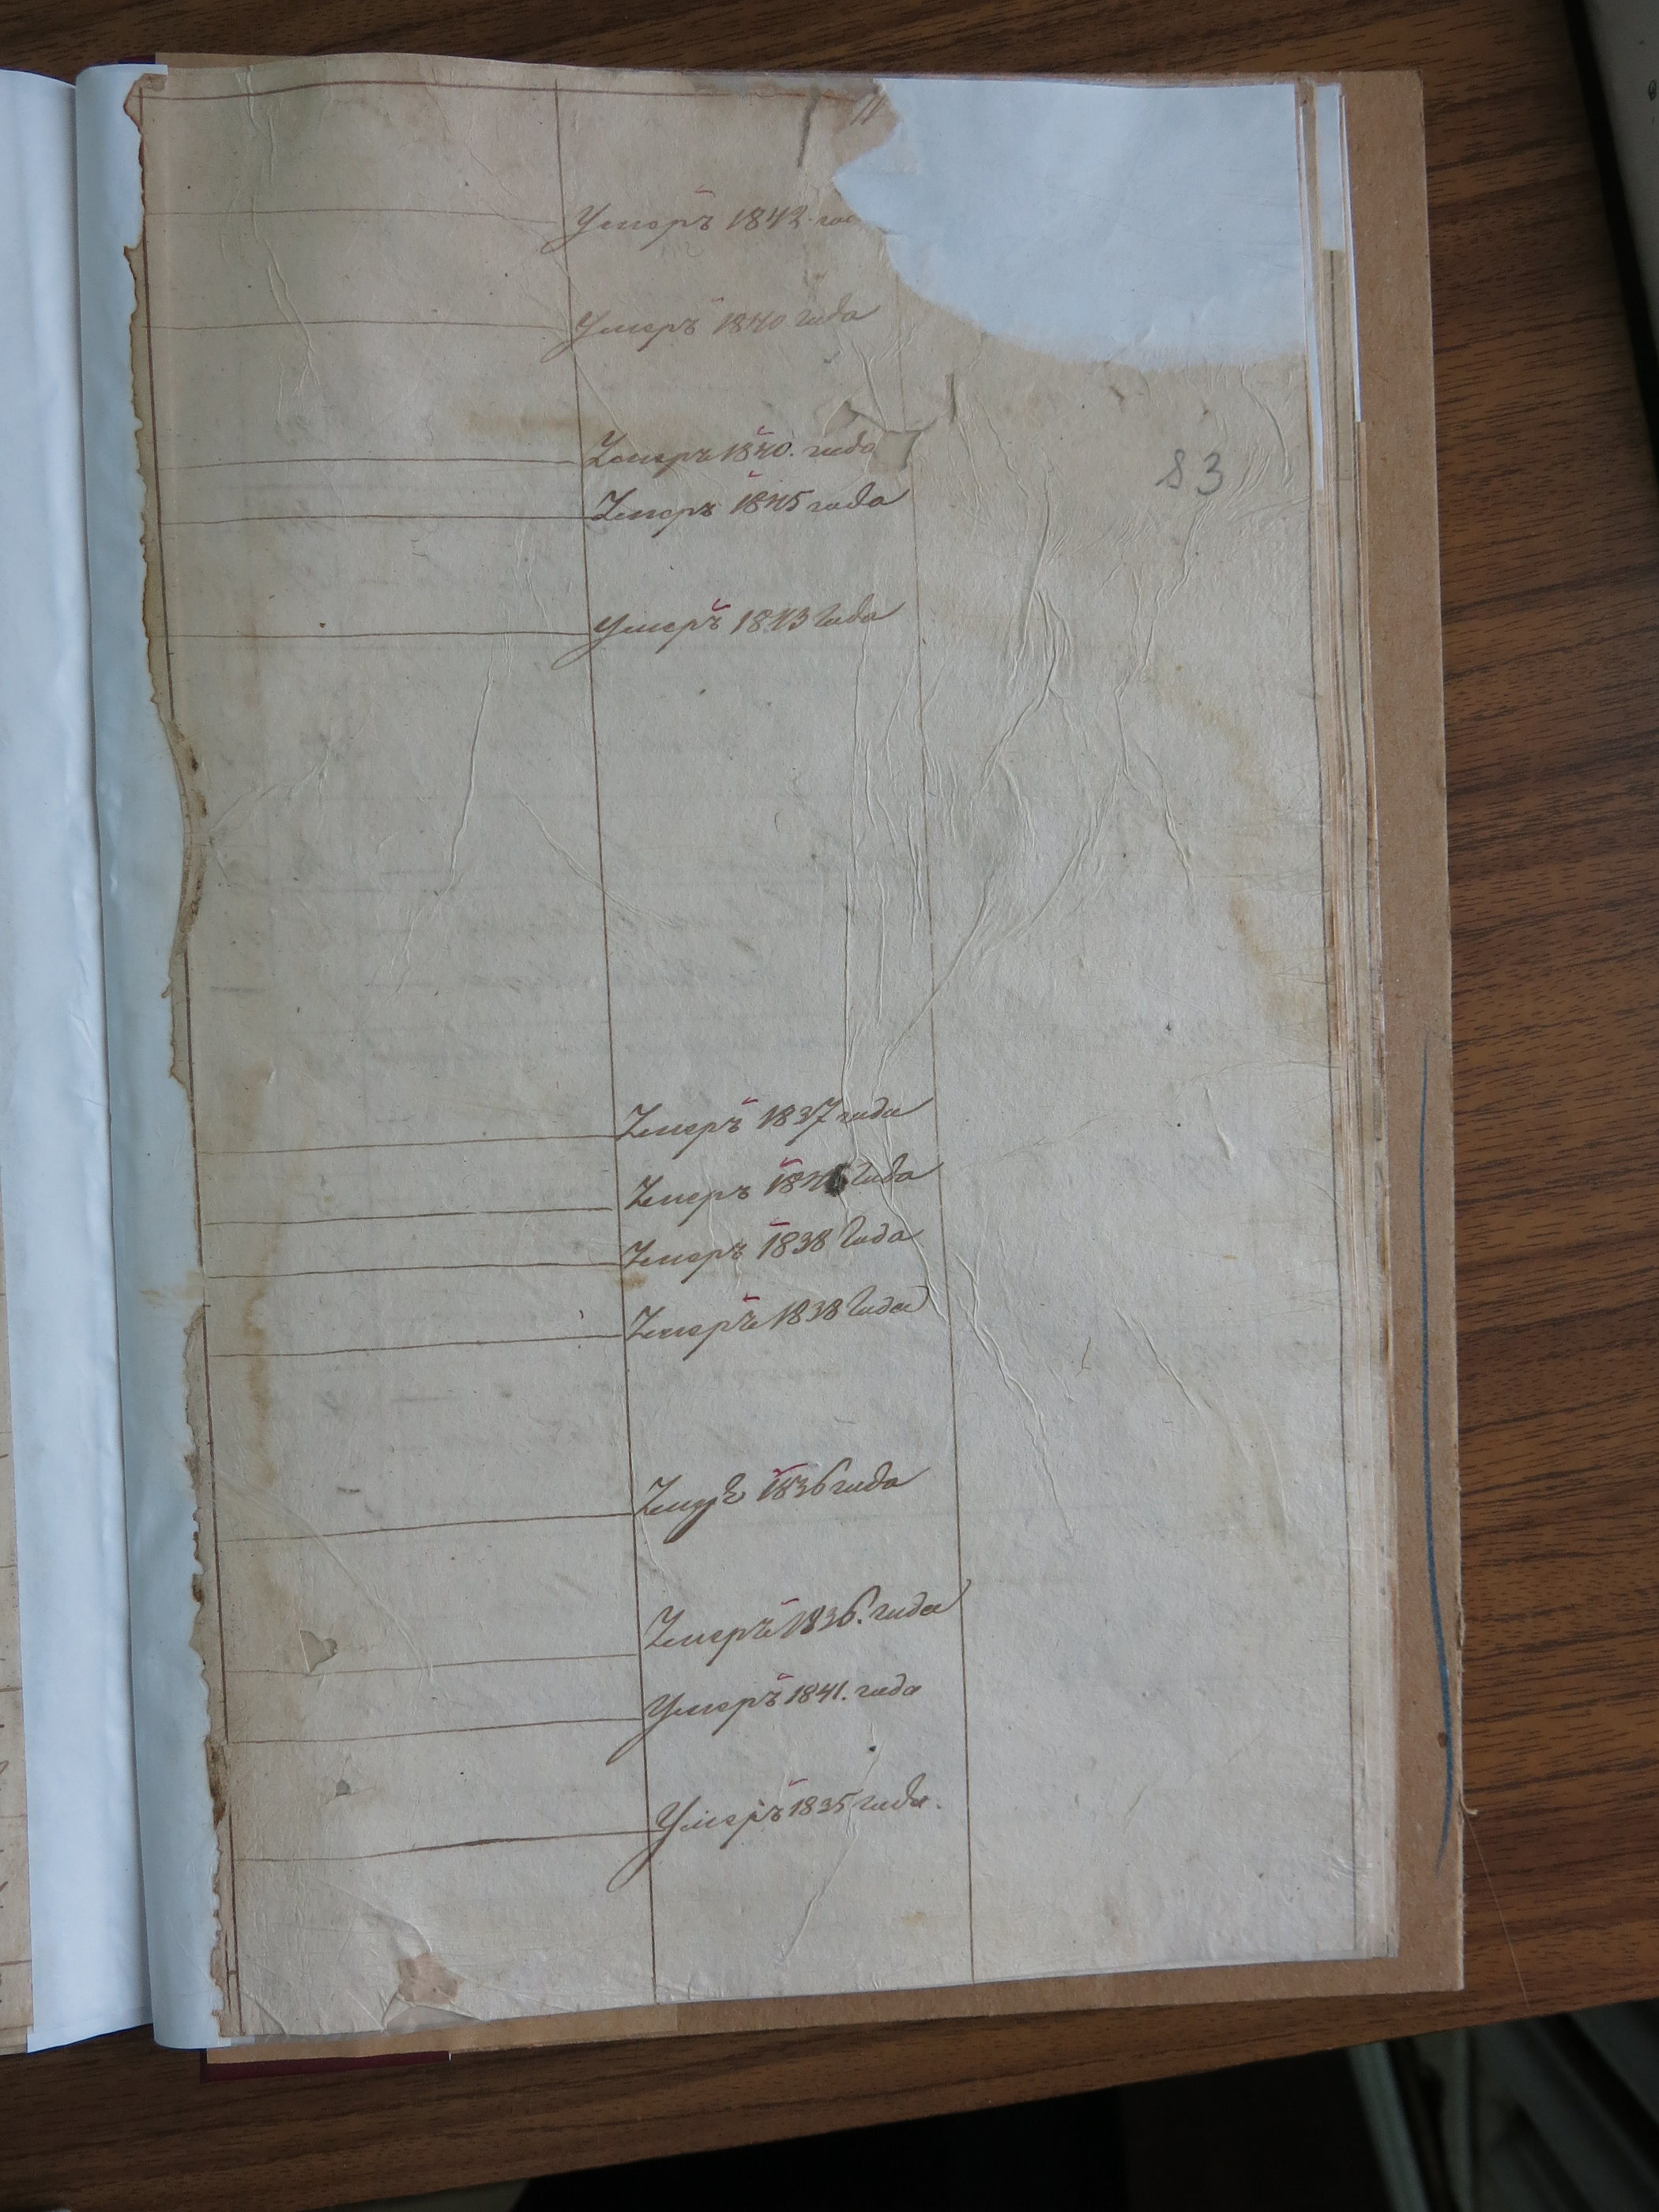 Умеръ 1842 го
Умеръ 1840 года
Умеръ 1840. года
83
Умеръ 1845 года
Умеръ 1843 года
Умеръ 1837 года
Умеръ года
Умеръ 1838 года
Умеръ 1838 года
Умеръ 1836 года
Умеръ 1836. года
Умеръ 1841. года
Умеръ 1835 года.